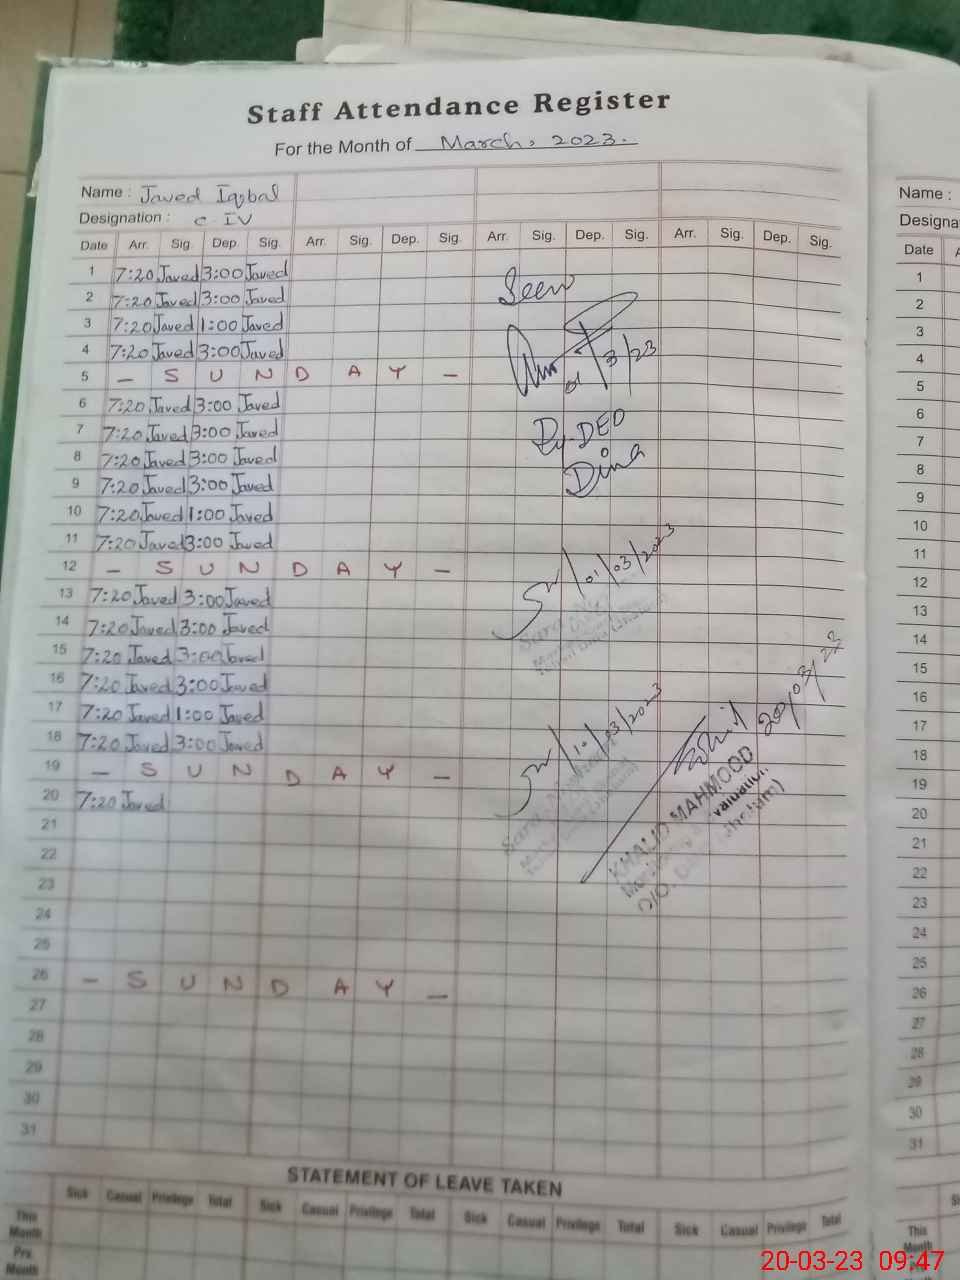 Staff Attendance Register
For the Month of March, 2023.
Name : Javed Iqbal
Designation : C IV
Date Arr. Sig. Dep. Sig. Arr. Sig. Dep. Sig. Arr. Sig. Dep. Sig. Arr. Sig. Dep. Sig.
1 7:20 Javed 3:00 Javed
2 7:20 Javed 3:00 Javed
3 7:20 Javed 1:00 Javed
4 7:20 Javed 3:00 Javed
5 – S U N D A Y –
6 7:20 Javed 3:00 Javed
7 7:20 Javed 3:00 Javed
8 7:20 Javed 3:00 Javed
9 7:20 Javed 3:00 Javed
10 7:20 Javed 1:00 Javed
11 7:20 Javed 3:00 Javed
12 – S U N D A Y –
13 7:20 Javed 3:00 Javed
14 7:20 Javed 3:00 Javed
15 7:20 Javed 3:00 Javed
16 7:20 Javed 3:00 Javed
17 7:20 Javed 1:00 Javed
18 7:20 Javed 3:00 Javed
19 – S U N D A Y –
20 7:20 Javed
21
22
23
24
25
26 – S U N D A Y –
27
28
29
30
31
Seen
01/3/23
Dy-DEO
Dina
01/03/2023
10/03/2023
20/03/23
KHALID MAHMOOD
STATEMENT OF LEAVE TAKEN
Sick Casual Privilege Total Sick Casual Privilege Total Sick Casual Privilege Total Sick Casual Privilege Total
This Month
Pre. Month
Name :
Designa
Date
1
2
3
4
5
6
7
8
9
10
11
12
13
14
15
16
17
18
19
20
21
22
23
24
25
26
27
28
29
30
31
This Month
20-03-23 09:47